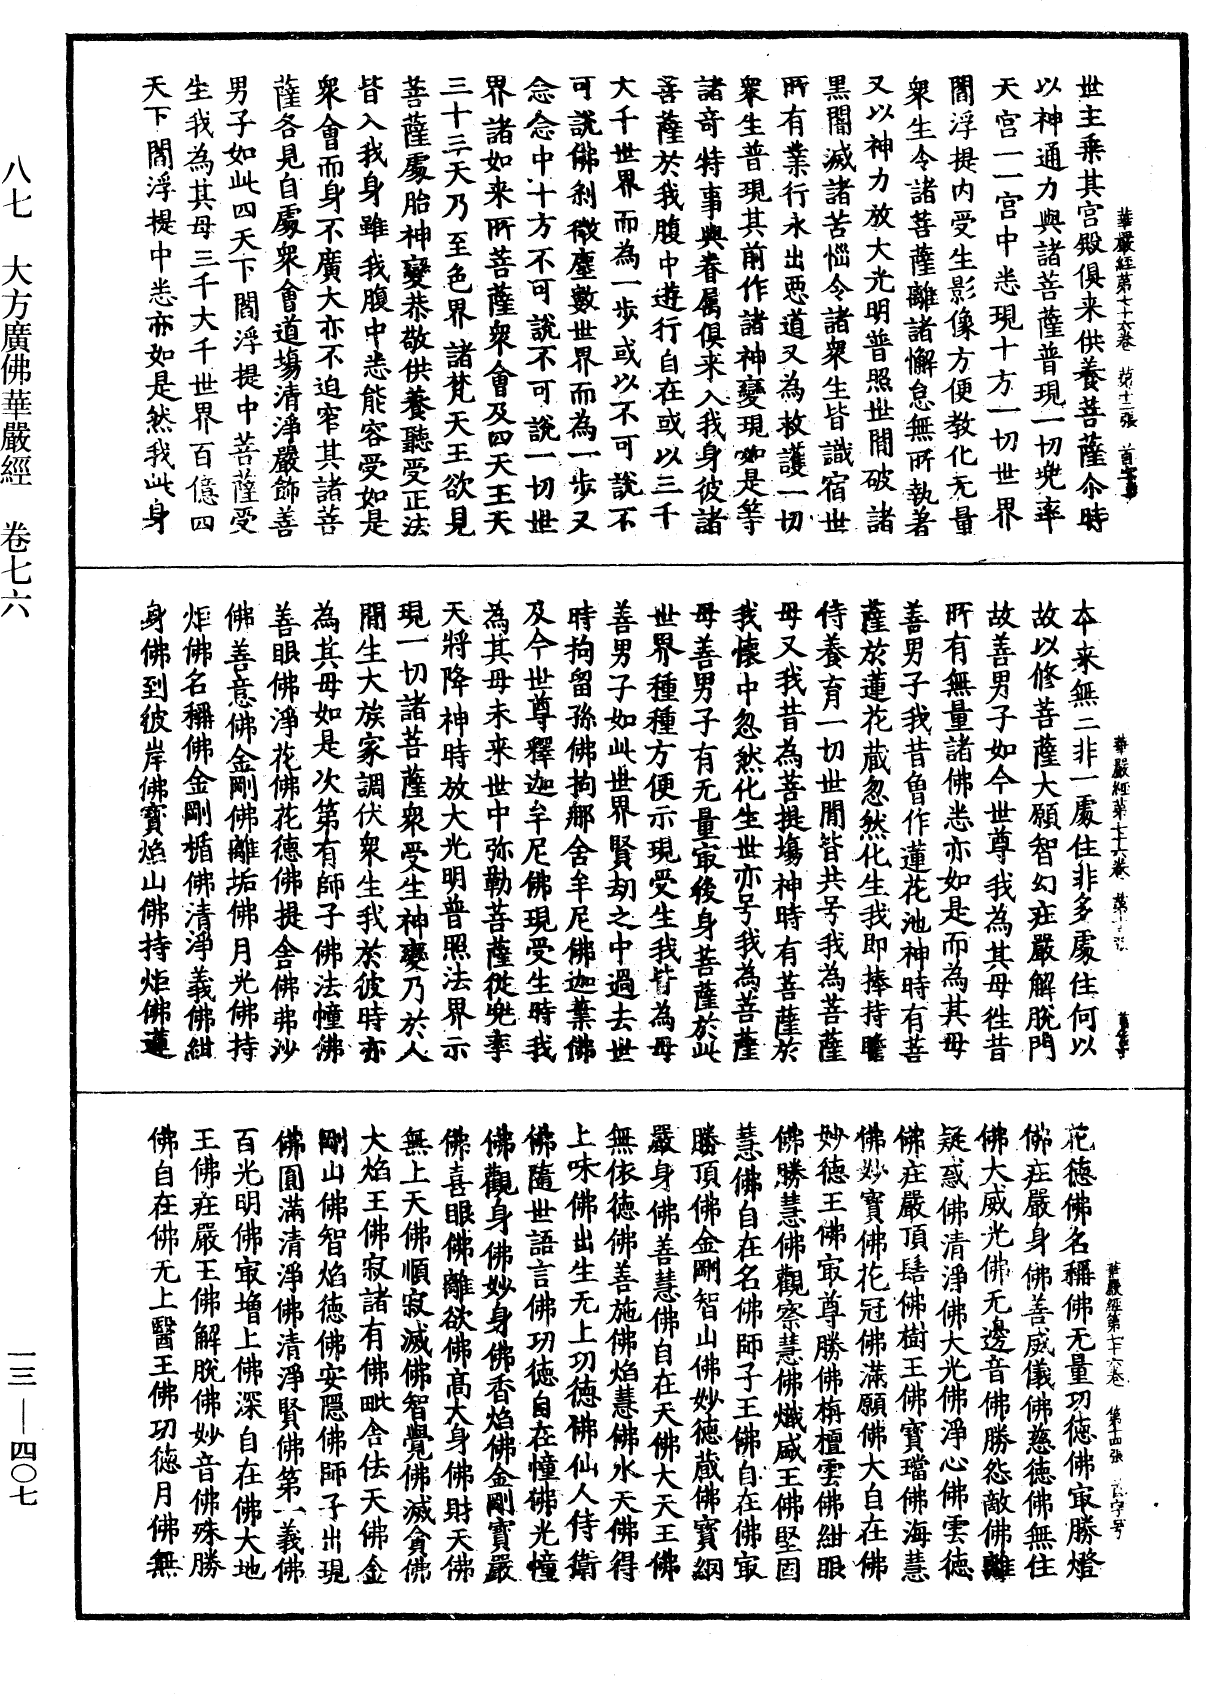 華嚴經第七十六卷 第十二張 首字號
世主乘其宮殿俱来供養菩薩尒時
以神通力與諸菩薩普現一切兜率
天宮一一宮中悉現十方一切世界
閻浮提內受生影像方便教化无量
衆生令諸菩薩離諸懈怠無所執著
又以神力放大光明普照世間破諸
黑闇滅諸苦惱令諸衆生皆識宿世
所有業行永出惡道又為救護一切
衆生普現其前作諸神變現如是等
諸奇特事與眷屬俱来入我身彼諸
菩薩於我腹中遊行自在或以三千
大千世界而為一步或以不可說不
可說佛剎微塵數世界而為一步又
念念中十方不可說不可說一切世
界諸如来所菩薩衆會及四天王天
三十三天乃至色界諸梵天王欲見
菩薩處胎神變恭敬供養聽受正法
皆入我身雖我腹中悉能容受如是
衆會而身不廣大亦不迫窄其諸菩
薩各見自處衆會道場清淨嚴飾善
男子如此四天下閻浮提中菩薩受
生我為其母三千大千世界百億四
天下閻浮提中悉亦如是然我此身
華嚴經第七十六卷 第十三張 首字號
本来無二非一處住非多處住何以
故以修菩薩大願智幻庄嚴解脫門
故善男子如今世尊我為其母徃昔
所有無量諸佛悉亦如是而為其母
善男子我昔曾作蓮花池神時有菩
薩於蓮花藏忽然化生我即捧持瞻
侍養育一切世間皆共号我為菩薩
母又我昔為菩提場神時有菩薩於
我懷中忽然化生世亦号我為菩薩
母善男子有无量㝡後身菩薩於此
世界種種方便示現受生我皆為母
善男子如此世界賢劫之中過去世
時拘留孫佛拘那舍牟尼佛迦葉佛
及今世尊釋迦牟尼佛現受生時我
為其母未来世中弥勒菩薩從兜率
天將降神時放大光明普照法界示
現一切諸菩薩衆受生神變乃於人
間生大族家調伏衆生我於彼時亦
為其母如是次第有師子佛法幢佛
善眼佛淨花佛花德佛提舍佛弗沙
佛善意佛金剛佛離垢佛月光佛持
炬佛名稱佛金剛楯佛清淨義佛紺
身佛到彼岸佛寶焰山佛持炬佛蓮
華嚴經第七十六卷 第十四張 首字号
花德佛名稱佛无量功德佛㝡勝燈
佛庄嚴身佛善威儀佛慈德佛無住
佛大威光佛无邊音佛勝怨敵佛離
疑惑佛清淨佛大光佛淨心佛雲德
佛庄嚴頂髻佛樹王佛寶璫佛海慧
佛妙寶佛花冠佛滿願佛大自在佛
妙德王佛㝡尊勝佛栴檀雲佛紺眼
佛勝慧佛觀察慧佛熾盛王佛堅固
慧佛自在名佛師子王佛自在佛㝡
勝頂佛金剛智山佛妙德藏佛寶網
嚴身佛善慧佛自在天佛大天王佛
無依德佛善施佛焰慧佛水天佛得
上味佛出生无上功德佛仙人侍衛
佛隨世語言佛功德自在幢佛光幢
佛觀身佛妙身佛香焰佛金剛寶嚴
佛喜眼佛離欲佛高大身佛財天佛
無上天佛順寂滅佛智覺佛滅貪佛
大焰王佛寂諸有佛毗舍佉天佛金
剛山佛智焰德佛安隱佛師子出現
佛圓滿清淨佛清淨賢佛第一義佛
百光明佛㝡增上佛深自在佛大地
王佛庄嚴王佛解脫佛妙音佛殊勝
佛自在佛无上醫王佛功德月佛無
八七 大方廣佛華嚴經 卷七六
一三—四〇七